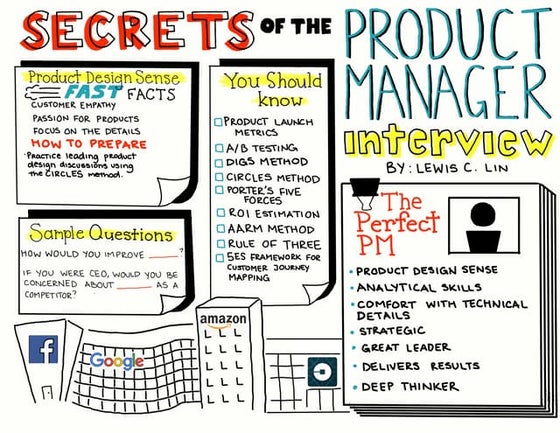 SECRETS OF THE
PRODUCT
MANAGER
interview
BY: LEWIS C. LIN
Product Design Sense
FAST FACTS
CUSTOMER EMPATHY
PASSION FOR PRODUCTS
FOCUS ON THE DETAILS
HOW TO PREPARE
• Practice leading product
design discussions using
the CIRCLES method.
Sample Questions
HOW WOULD YOU IMPROVE ____?
IF YOU WERE CEO, WOULD YOU BE
CONCERNED ABOUT ____ AS A
COMPETITOR?
You Should
know
PRODUCT LAUNCH
METRICS
A/B TESTING
DIGS METHOD
CIRCLES METHOD
PORTER'S FIVE
FORCES
ROI ESTIMATION
AARM METHOD
RULE OF THREE
5ES FRAMEWORK FOR
CUSTOMER JOURNEY
MAPPING
The
Perfect
PM
• PRODUCT DESIGN SENSE
• ANALYTICAL SKILLS
• COMFORT WITH TECHNICAL
DETAILS
• STRATEGIC
• GREAT LEADER
• DELIVERS RESULTS
• DEEP THINKER
f
Google
amazon